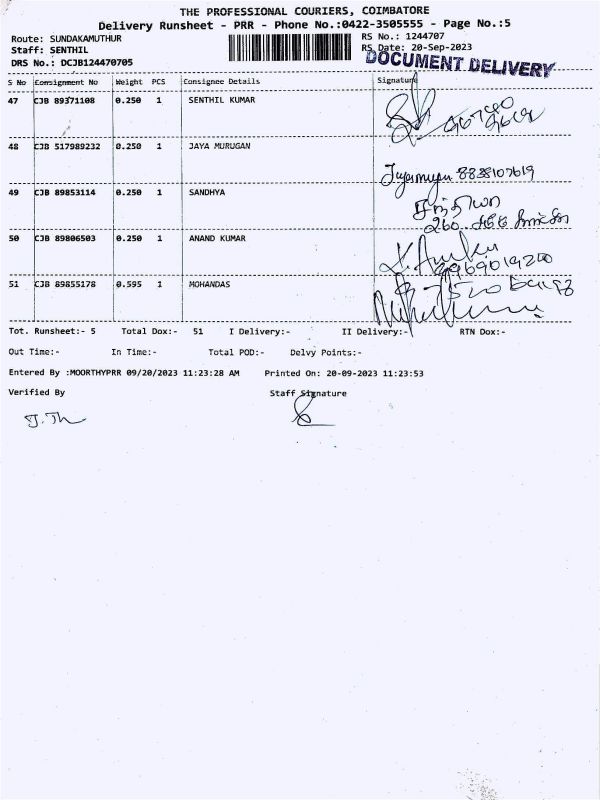 THE PROFESSIONAL COURIERS, COIMBATORE
Delivery Runsheet - PRR - Phone No.:0422-3505555 - Page No.:5
Route: SUNDAKAMUTHUR
RS No.: 1244707
Staff: SENTHIL
RS Date: 20-Sep-2023
DRS No.: DCJB124470705
DOCUMENT DELIVERY
S No Consignment No Weight PCS Consignee Details Signature
47 CJB 89371108 0.250 1 SENTHIL KUMAR
48 CJB 517989232 0.250 1 JAYA MURUGAN
8838107619
49 CJB 89853114 0.250 1 SANDHYA
50 CJB 89806503 0.250 1 ANAND KUMAR
51 CJB 89855178 0.595 1 MOHANDAS
Tot. Runsheet:- 5 Total Dox:- 51 I Delivery:- II Delivery:- RTN Dox:-
Out Time:- In Time:- Total POD:- Delvy Points:-
Entered By :MOORTHYPRR 09/20/2023 11:23:28 AM Printed On: 20-09-2023 11:23:53
Verified By Staff Signature